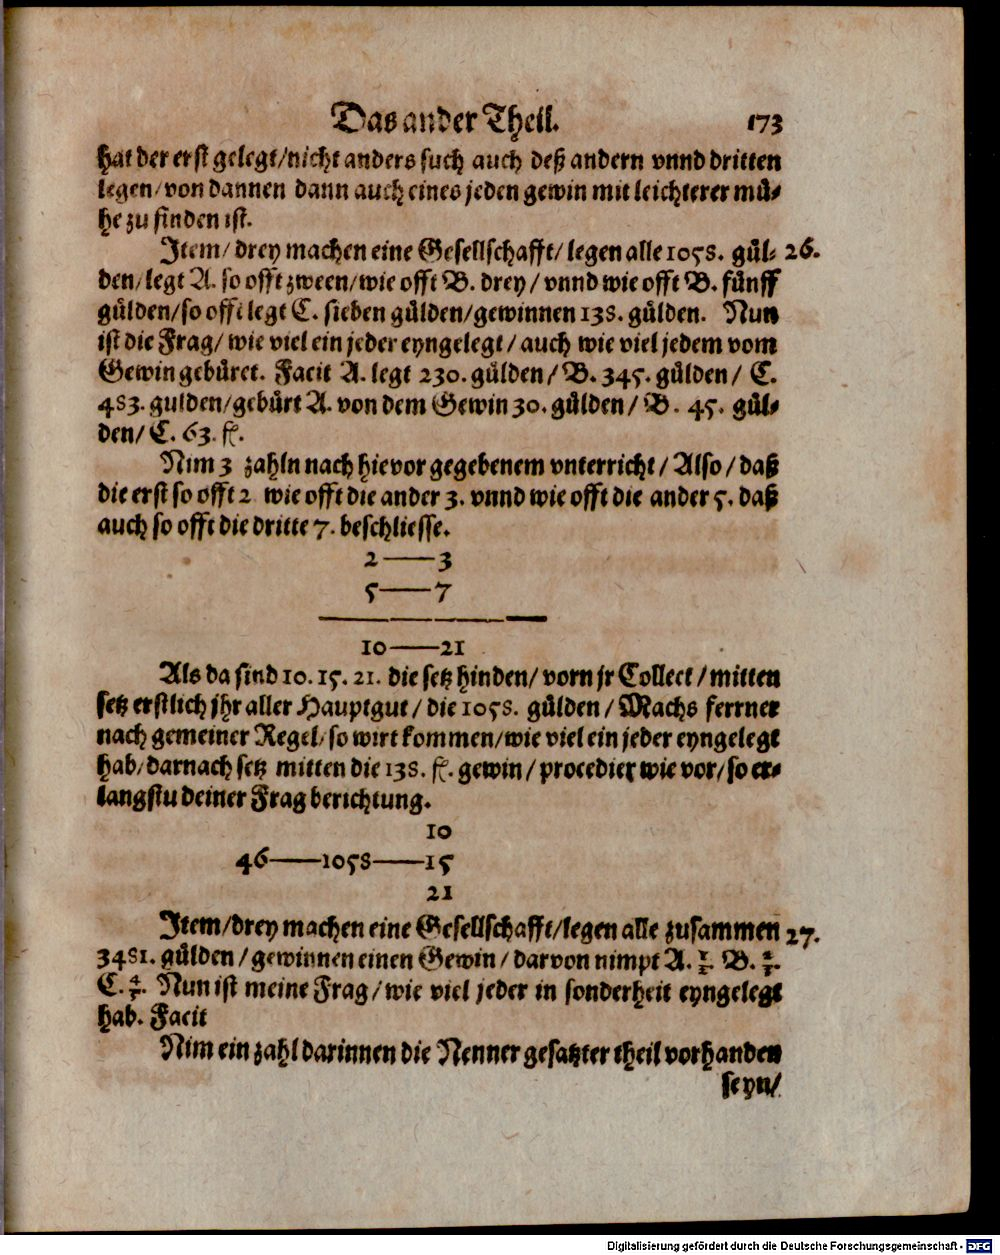 Das ander Theil. 173
hat der erst gelegt/nicht anders such auch deß andern vnnd dritten
legen/von dannen dann auch eines jeden gewin mit leichterer mü⸗
he zu finden ist.
Item/ drey machen eine Gesellschafft/ legen alle 1058. gül⸗ 26.
den/legt A. so offt zween/wie offt B. drey/ vnnd wie offt B. fünff
gülden/so offt legt C. sieben gülden/gewinnen 138. gülden. Nun
ist die Frag/ wie viel ein jeder eyngelegt/ auch wie viel jedem vom
Gewin gebüret. Facit A. legt 230. gülden/ B. 345. gülden/ C.
483. gulden/gebürt A. von dem Gewin 30. gülden/ B. 45. gül⸗
den/ C. 63. fl.
Nim 3 zahln nach hievor gegebenem vnterricht/ Also/ daß
die erst so offt 2 wie offt die ander 3. vnnd wie offt die ander 5. daß
auch so offt die dritte 7. beschliesse.
2——3
5——7
10——21
Als da sind 10. 15. 21. die setz hinden/ vorn jr Collect/ mitten
setz erstlich jhr aller Hauptgut/ die 1058. gülden/ Machs ferrner
nach gemeiner Regel/ so wirt kommen/wie viel ein jeder eyngelegt
hab/darnach setz mitten die 138. fl. gewin/ procedier wie vor/so er⸗
langstu deiner Frag berichtung.
10
46——1058——15
21
Item/drey machen eine Gesellschafft/legen alle zusammen 27.
3481. gülden/ gewinnen einen Gewin/ darvon nimpt A. B.
C. Nun ist meine Frag/ wie viel jeder in sonderheit eyngelegt
hab. Facit
Nim ein zahl darinnen die Nenner gesatzter theil vorhanden
seyn/
Digitalisierung gefördert durch die Deutsche Forschungsgemeinschaft - DFG